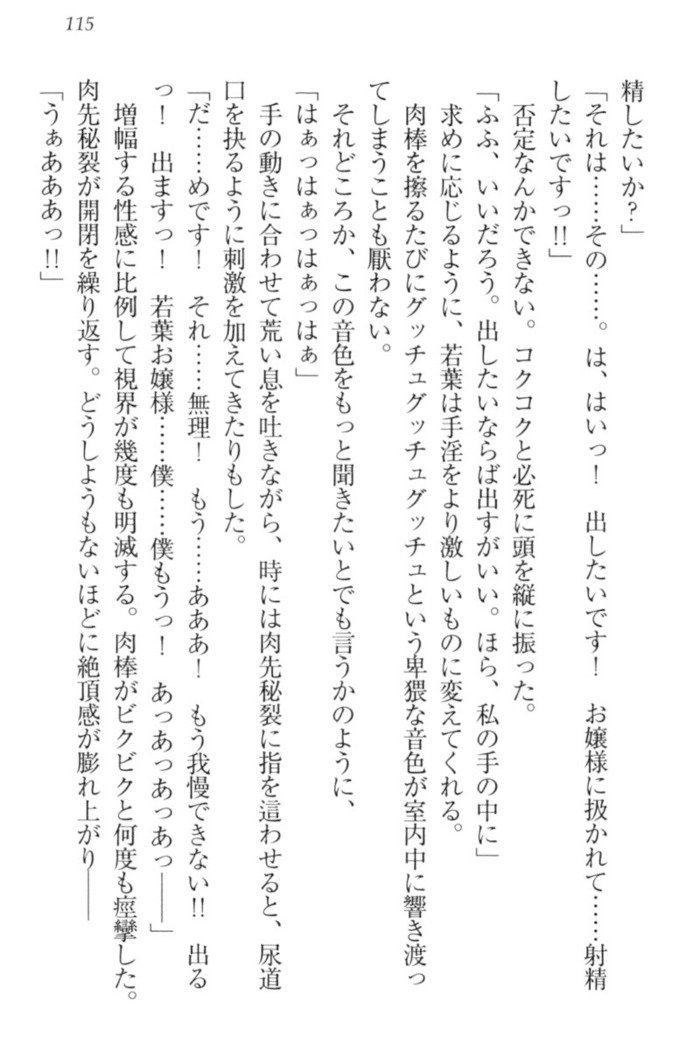 115
精したいか？」
「それは……その……。は、はいっ！　出したいです！　お嬢様に扱かれて……射精
したいですっ!!」
　否定なんかできない。コクコクと必死に頭を縦に振った。
「ふふ、いいだろう。出したいならば出すがいい。ほら、私の手の中に」
　求めに応じるように、若葉は手淫をより激しいものに変えてくれる。
　肉棒を擦るたびにグッチュグッチュグッチュという卑猥な音色が室内中に響き渡っ
てしまうことも厭わない。
　それどころか、この音色をもっと聞きたいとでも言うかのように、
「はぁっはぁっはぁっはぁ」
　手の動きに合わせて荒い息を吐きながら、時には肉先秘裂に指を這わせると、尿道
口を抉るように刺激を加えてきたりもした。
「だ……めです！　それ……無理！　もう……あああ！　もう我慢できない!!　出る
っ！　出ますっ！　若葉お嬢様……僕……僕もうっ！　あっあっあっあっ――」
　増幅する性感に比例して視界が幾度も明滅する。肉棒がビクビクと何度も痙攣した。
肉先秘裂が開閉を繰り返す。どうしようもないほどに絶頂感が膨れ上がり――
「うぁあああっ!!」